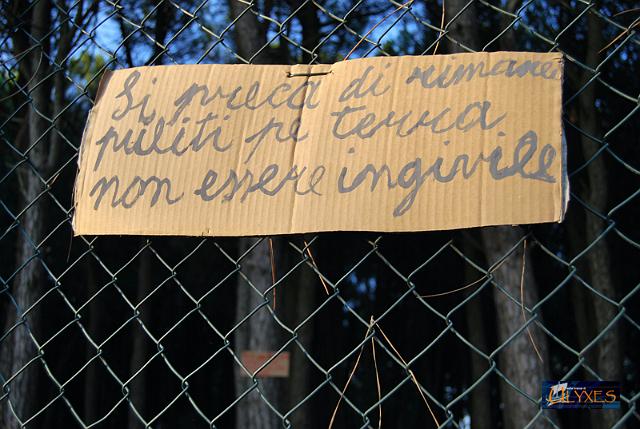 Si preca di rimane
puliti pe terra
non essere ingivile
ULYXES